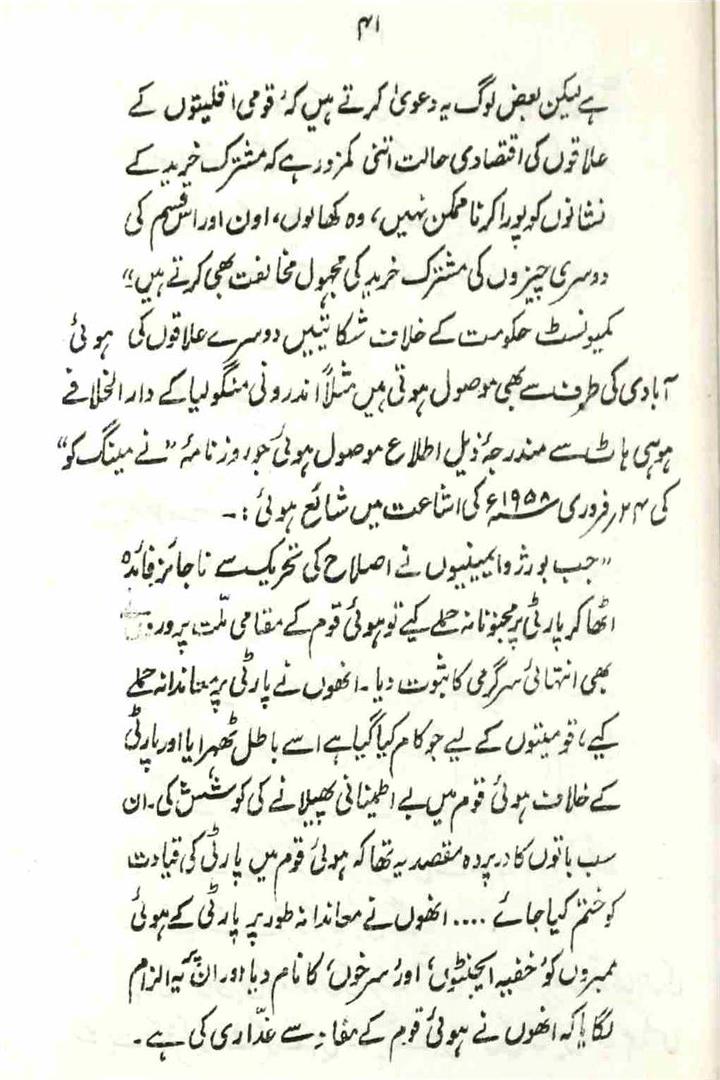 ۴۱
ہے لیکن بعض لوگ یہ دعویٰ کرتے ہیں کہ ' قومی اقلیتوں کے
علاقوں کی اقتصادی حالت اتنی کمزور ہے کہ مشترک خرید کے
نشانوں کو پورا کرنا ممکن نہیں، وہ کھالوں، اون اور اس قسم کی
دوسری چیزوں کی مشترک خرید کی مجہول مخالفت بھی کرتے ہیں"
کمیونسٹ حکومت کے خلاف شکایتیں دوسرے علاقوں کی ہوئی
آبادی کی طرف سے بھی موصول ہوتی ہیں مثلاً اندرونی منگولیا کے دارالخلافے
ہوہی ہاٹ سے مندرجۂ ذیل اطلاع موصول ہوئی جو روزنامۂ "نے مینگ کو"
کی ۲۴ر فروری ۱۹۵۸ء کی اشاعت میں شائع ہوئی :۔
"جب بورژوا یمینیوں نے اصلاح کی تحریک سے ناجائز فائدہ
اٹھا کر پارٹی پر مجنونانہ حملے کیے تو ہوئی قوم کے مقامی ملّت پروروں نے
بھی انتہائی سرگرمی کا ثبوت دیا۔ انھوں نے پارٹی پر معاندانہ حملے
کیے، قومیتوں کے لیے جو کام کیا گیا ہے اسے باطل ٹھہرایا اور پارٹی
کے خلاف ہوئی قوم میں بے اطمینانی پھیلانے کی کوشش کی۔ ان
سب باتوں کا درپردہ مقصد یہ تھا کہ ہوئی قوم میں پارٹی کی قیادت
کو ختم کیا جائے .... انھوں نے معاندانہ طور پر پارٹی کے ہوئی
ممبروں کو 'خفیہ ایجنٹوں' اور 'سرخوں' کا نام دیا اور ان پر یہ الزام
لگایا کہ انھوں نے ہوئی قوم کے مفاد سے غدّاری کی ہے۔